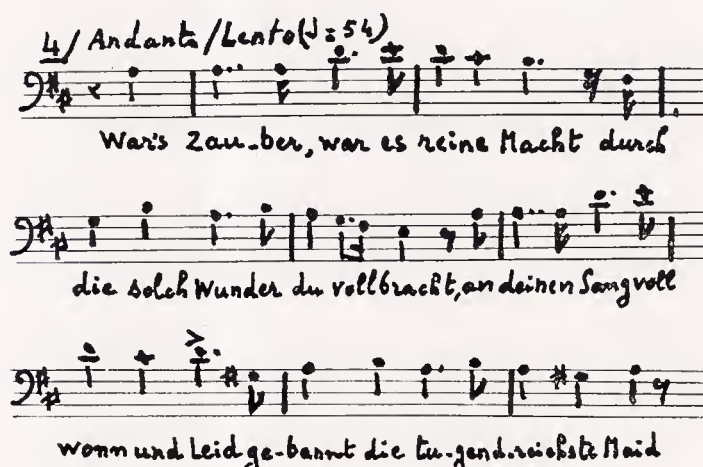 4/ Andante/Lento(♩=54)
War's Zau-ber, war es reine Macht durch
die solch Wunder du vollbracht, an deinen Sang voll
wonn und Leid ge-bannt die tu-gendreichste Maid